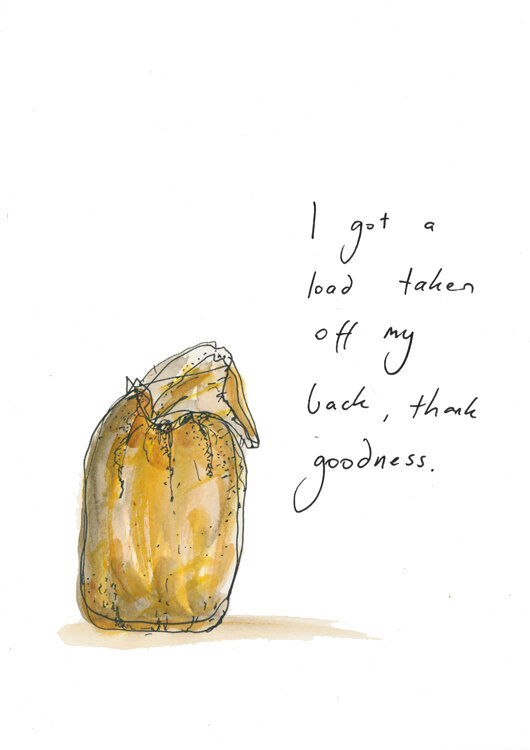 I got a
load taken
off my
back, thank
goodness.